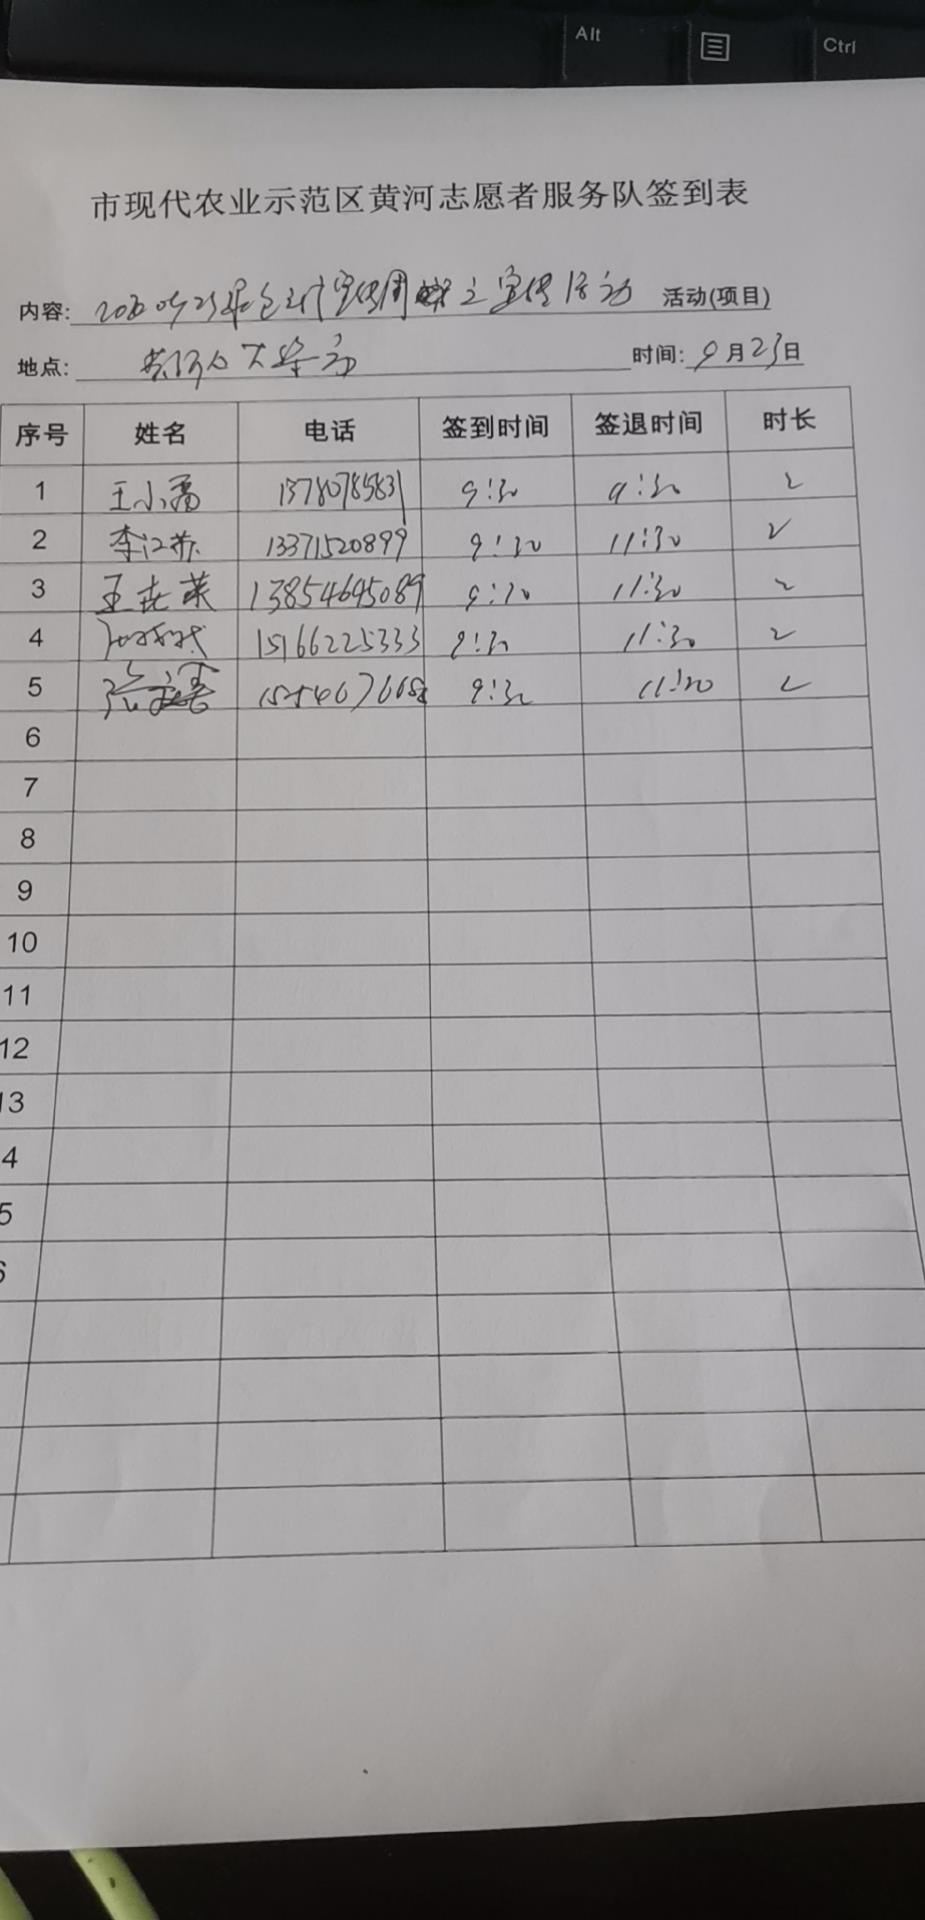 Alt
Ctrl
市现代农业示范区黄河志愿者服务队签到表
内容: 宣传周 宣传活动 活动(项目)
地点: 时间: 9月23日
序号 姓名 电话 签到时间 签退时间 时长
1 王小 13780785831 9:30 9:30 2
2 李江苏 13371520899 9:30 11:30 2
3 王 13854645089 9:30 11:30 2
4 15166225333 9:30 11:30 2
5 张 9:30 11:30 2
6
7
8
9
10
11
12
13
4
5
6